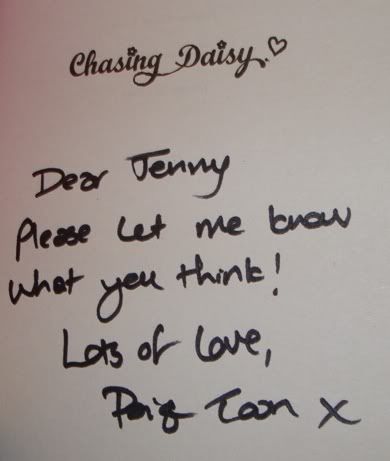 Chasing Daisy
Dear Jenny
Please let me know
what you think!
Lots of love,
Paige Toon x